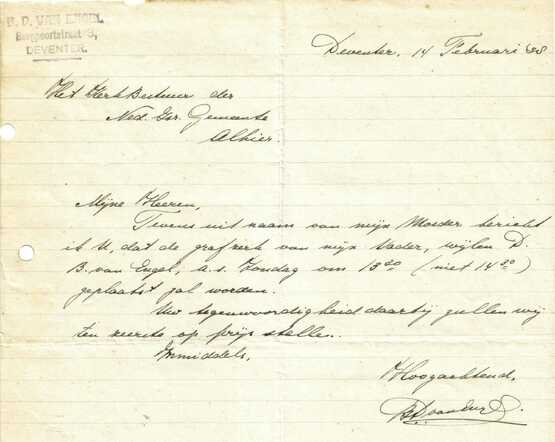 B. D. VAN ENGEL
Bergpoortstraat 3,
DEVENTER.
Deventer, 14 Februari
Het Kerkbestuur der
Ned. Isr. Gemeente
Alhier.
Mijne Heeren,
Tevens uit naam van mijn Moeder bericht
ik U, dat de grafzerk van mijn Vader, wijlen D.
B. van Engel, a.s. Zondag om 13²⁰ (niet 14²⁰)
geplaatst zal worden.
Uw tegenwoordigheid daarbij zullen wij
ten zeerste op prijs stellen.
Inmiddels,
Hoogachtend,
BDvanEngel.